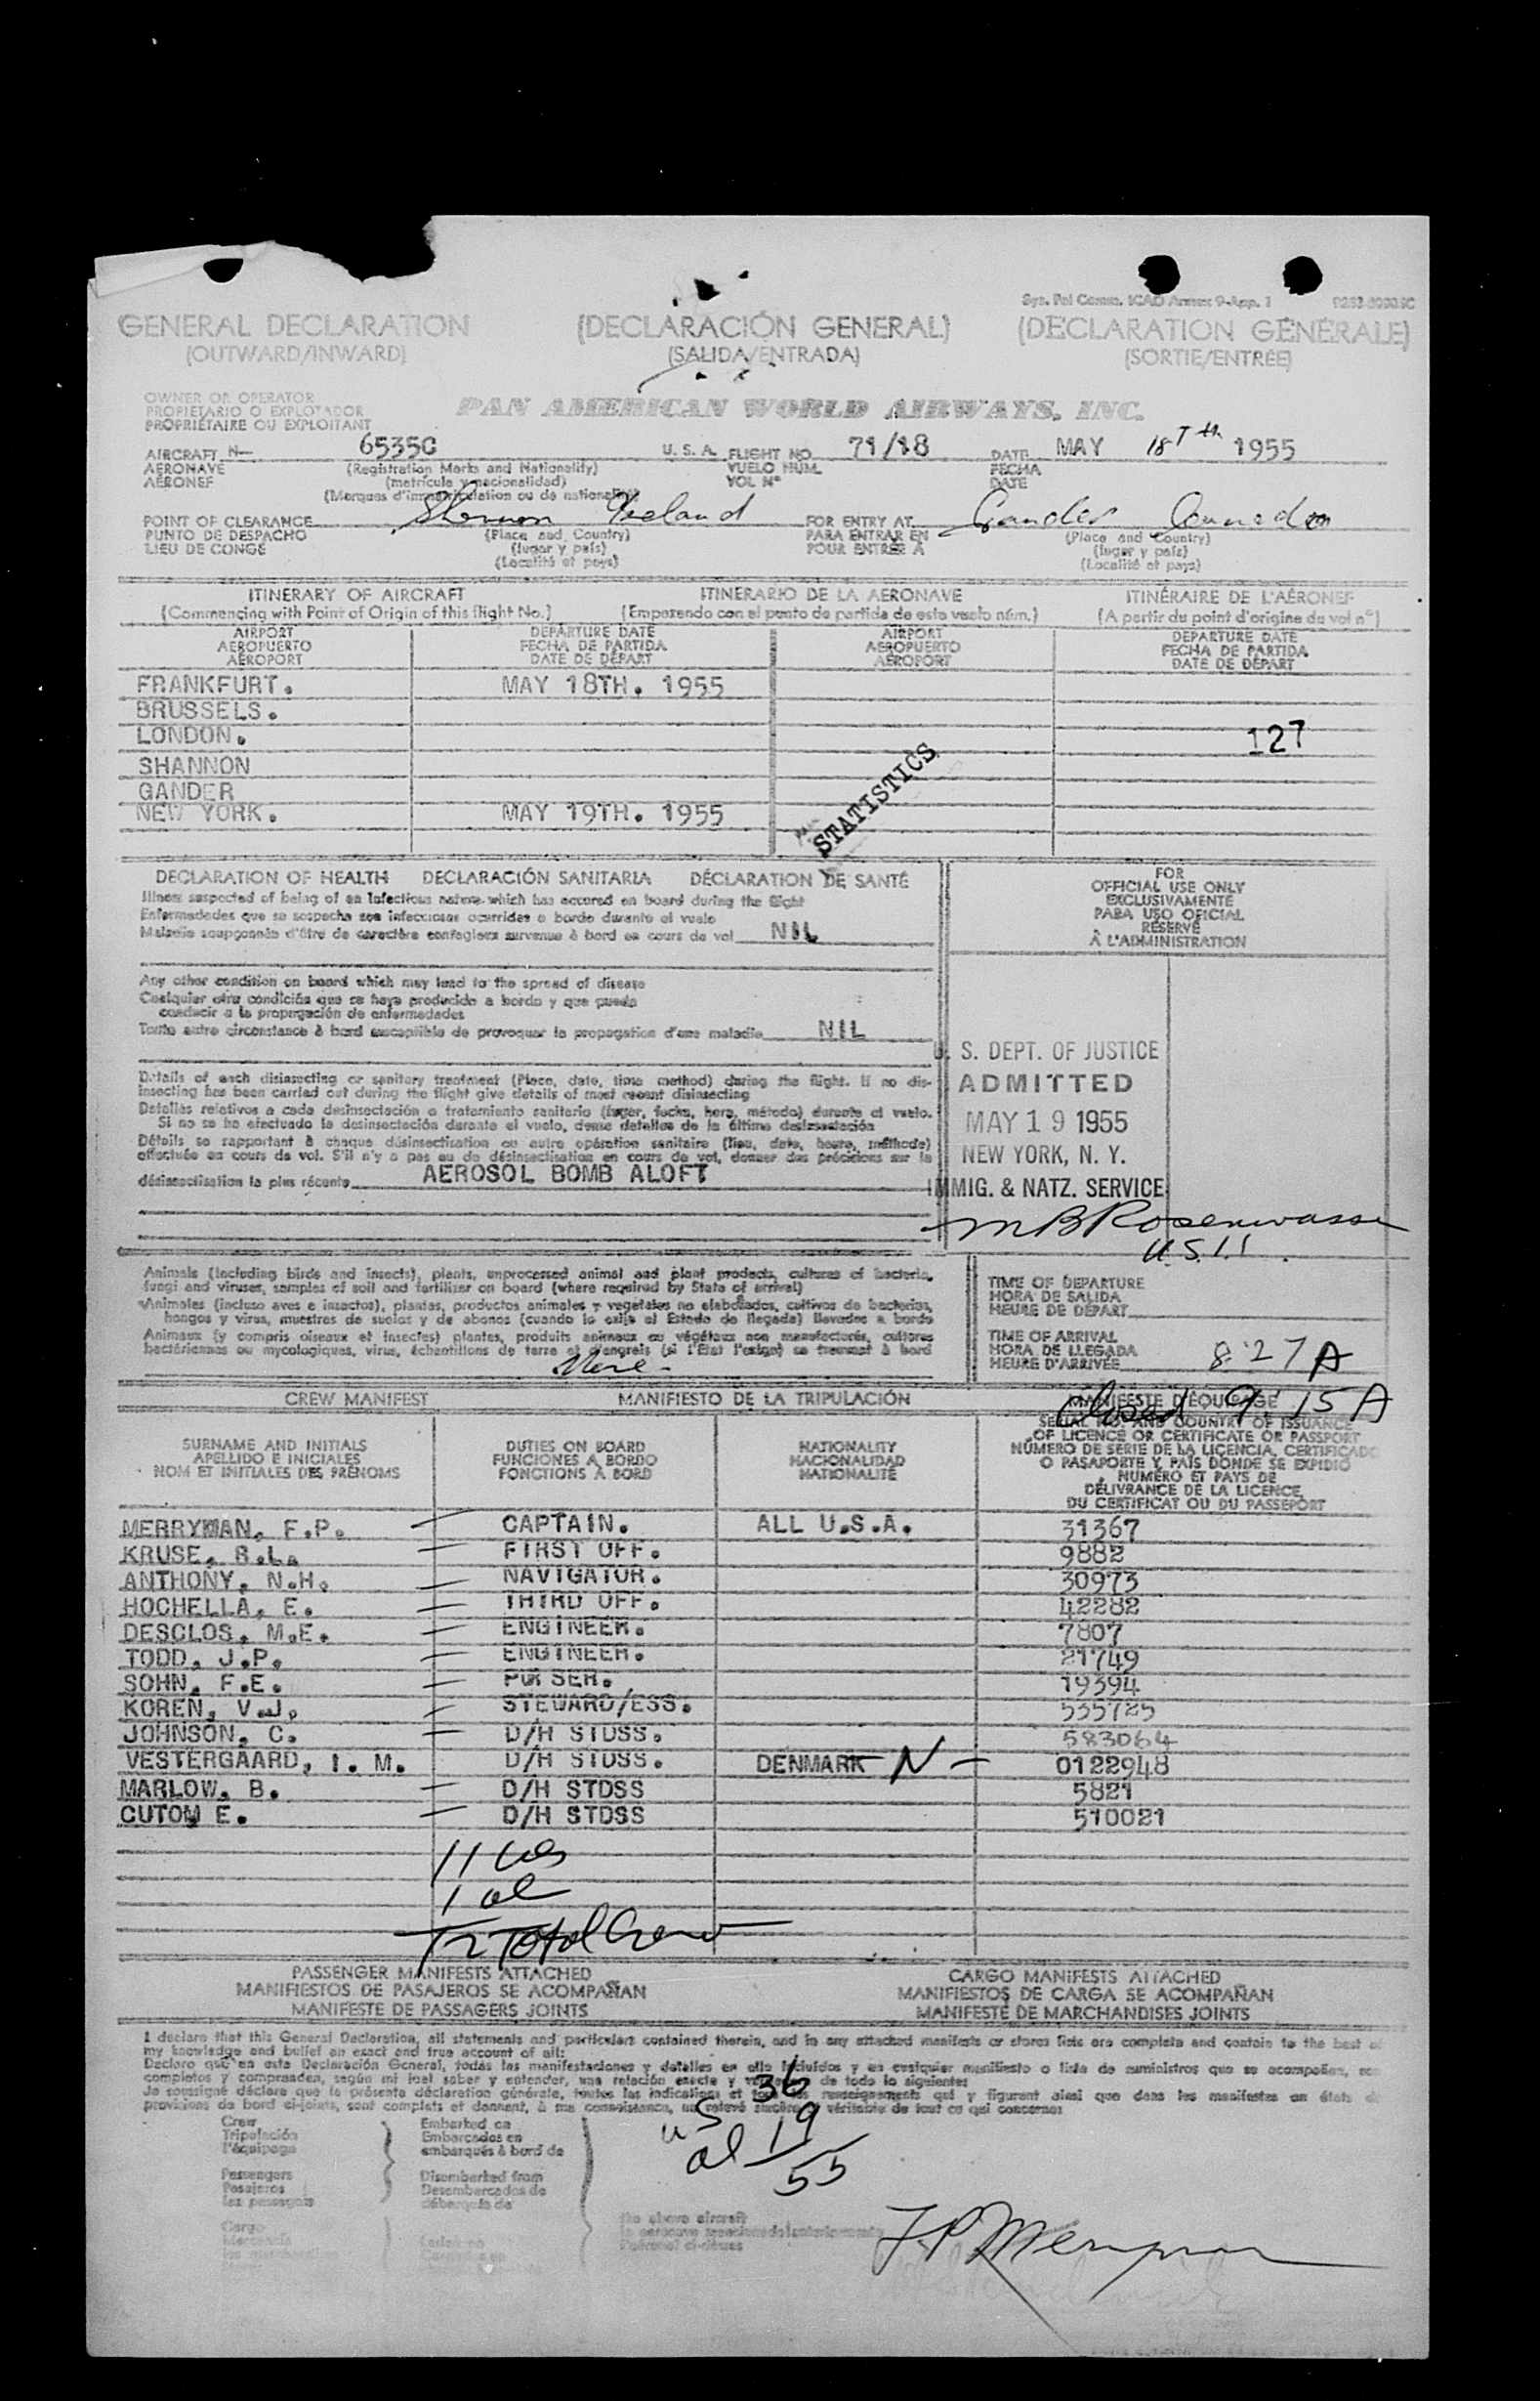 Sys. Pol Comm. ICAO Annex 9-App. 1
GENERAL DECLARATION (DECLARACIÓN GENERAL) (DECLARATION GÉNÉRALE)
(OUTWARD/INWARD) (SALIDA/ENTRADA) (SORTIE/ENTRÉE)
OWNER OR OPERATOR
PROPIETARIO O EXPLOTADOR
PROPRIÉTAIRE OU EXPLOITANT
PAN AMERICAN WORLD AIRWAYS, INC.
AIRCRAFT N- 6535C U. S. A. FLIGHT NO. 71/18 DATE MAY 18Tth 1955
AERONAVE (Registration Marks and Nationality) VUELO NÚM. FECHA
AÉRONEF (matrícula y nacionalidad) VOL Nº DATE
(Marques d'immatriculation ou de nationalité)
POINT OF CLEARANCE Shannon Ireland FOR ENTRY AT Gander Canada
PUNTO DE DESPACHO (Place and Country) PARA ENTRAR EN (Place and Country)
LIEU DE CONGÉ (lugar y país) POUR ENTRER À (lugar y país)
(Localité et pays) (Localité et pays)
ITINERARY OF AIRCRAFT ITINERARIO DE LA AERONAVE ITINÉRAIRE DE L'AÉRONEF
(Commencing with Point of Origin of this flight No.) (Empezando con el punto de partida de este vuelo núm.) (A partir du point d'origine du vol nº)
AIRPORT DEPARTURE DATE AIRPORT DEPARTURE DATE
AEROPUERTO FECHA DE PARTIDA AEROPUERTO FECHA DE PARTIDA
AÉROPORT DATE DE DÉPART AÉROPORT DATE DE DÉPART
FRANKFURT. MAY 18TH. 1955
BRUSSELS.
LONDON. 127
SHANNON
GANDER
NEW YORK. MAY 19TH. 1955
STATISTICS
DECLARATION OF HEALTH DECLARACIÓN SANITARIA DÉCLARATION DE SANTÉ
Illness suspected of being of an infectious nature which has occured on board during the flight
Enfermedades que se sospecha son infecciosas ocurridas a bordo durante el vuelo
Maladie soupçonnée d'être de caractère contagieux survenue à bord en cours de vol NIL
FOR
OFFICIAL USE ONLY
EXCLUSIVAMENTE
PARA USO OFICIAL
RÉSERVÉ
À L'ADMINISTRATION
Any other condition on board which may lead to the spread of disease
Cualquier otra condición que se haya producido a bordo y que pueda
conducir a la propagación de enfermedades
Toute autre circonstance à bord susceptible de provoquer la propagation d'une maladie NIL
Details of each disinsecting or sanitary treatment (Place, date, time method) during the flight. If no dis-
insecting has been carried out during the flight give details of most recent disinsecting
Detalles relativos a cada desinsectación o tratamiento sanitario (lugar, fecha, hora, método) durante el vuelo.
Si no se ha efectuado la desinsectación durante el vuelo, dense detalles de la última desinsectación
Détails se rapportant à chaque désinsectisation ou autre opération sanitaire (lieu, date, heure, méthode)
effectuée en cours de vol. S'il n'y a pas eu de désinsectisation en cours de vol, donner des précisions sur la
désinsectisation la plus récente AEROSOL BOMB ALOFT
U. S. DEPT. OF JUSTICE
ADMITTED
MAY 19 1955
NEW YORK, N. Y.
IMMIG. & NATZ. SERVICE
M B Rosenwasser
U.S.I.I.
Animals (including birds and insects), plants, unprocessed animal and plant products, cultures of bacteria,
fungi and viruses, samples of soil and fertilizer on board (where required by State of arrival)
Animales (incluso aves e insectos), plantas, productos animales y vegetales no elaborados, cultivos de bacterias,
hongos y virus, muestras de suelos y de abonos (cuando lo exija el Estado de llegada) llevados a bordo
Animaux (y compris oiseaux et insectes) plantes, produits animaux ou végétaux non manufacturés, cultures
bactériennes ou mycologiques, virus, échantillons de terre et d'engrais (si l'État l'exige) se trouvant à bord
None -
TIME OF DEPARTURE
HORA DE SALIDA
HEURE DE DÉPART
TIME OF ARRIVAL
HORA DE LLEGADA
HEURE D'ARRIVÉE 8:27 A
Closed 9:15 A
CREW MANIFEST MANIFIESTO DE LA TRIPULACIÓN MANIFESTE D'ÉQUIPAGE
SURNAME AND INITIALS DUTIES ON BOARD NATIONALITY SERIAL NO. AND COUNTRY OF ISSUANCE
APELLIDO E INICIALES FUNCIONES A BORDO NACIONALIDAD OF LICENCE OR CERTIFICATE OR PASSPORT
NOM ET INITIALES DES PRÉNOMS FONCTIONS À BORD NATIONALITÉ NÚMERO DE SERIE DE LA LICENCIA, CERTIFICADO
O PASAPORTE Y PAÍS DONDE SE EXPIDIÓ
NUMÉRO ET PAYS DE
DÉLIVRANCE DE LA LICENCE,
DU CERTIFICAT OU DU PASSEPORT
MERRYMAN, F.P. CAPTAIN. ALL U.S.A. 31367
KRUSE, B.L. FIRST OFF. 9882
ANTHONY, N.H. NAVIGATOR. 30973
HOCHELLA, E. THIRD OFF. 42282
DESCLOS, M.E. ENGINEER. 7807
TODD, J.P. ENGINEER. 21749
SOHN, F.E. PURSER. 19394
KOREN, V.J. STEWARD/ESS. 535725
JOHNSON, C. D/H STDSS. 583064
VESTERGAARD, I. M. D/H STDSS. DENMARK N - 0122948
MARLOW, B. D/H STDSS 5821
CUTOW E. D/H STDSS 510021
11 US
1 al
12 Total Crew
PASSENGER MANIFESTS ATTACHED CARGO MANIFESTS ATTACHED
MANIFIESTOS DE PASAJEROS SE ACOMPAÑAN MANIFIESTOS DE CARGA SE ACOMPAÑAN
MANIFESTE DE PASSAGERS JOINTS MANIFESTE DE MARCHANDISES JOINTS
I declare that this General Declaration, all statements and particulars contained therein, and in any attached manifests or stores lists are complete and contain to the best of
my knowledge and belief an exact and true account of all:
Declaro que en esta Declaración General, todas las manifestaciones y detalles en ella incluidos y en cualquier manifiesto o lista de suministros que se acompañen, son
completos y comprenden, según mi leal saber y entender, una relación exacta y de todo lo siguiente:
Je soussigné déclare que la présente déclaration générale, toutes les indications et tous les renseignements qui y figurent ainsi que dans les manifestes en états de
provisions de bord ci-joints, sont complets et donnent, à ma connaissance, un relevé sincère véritable de tout ce qui concerne:
US 36
al 19
55
Crew Embarked on
Tripulación Embarcados en
l'équipage embarqués à bord de
Passengers Disembarked from
Pasajeros Desembarcados de
les passagers débarqués de
Cargo the above aircraft
F P Merryman